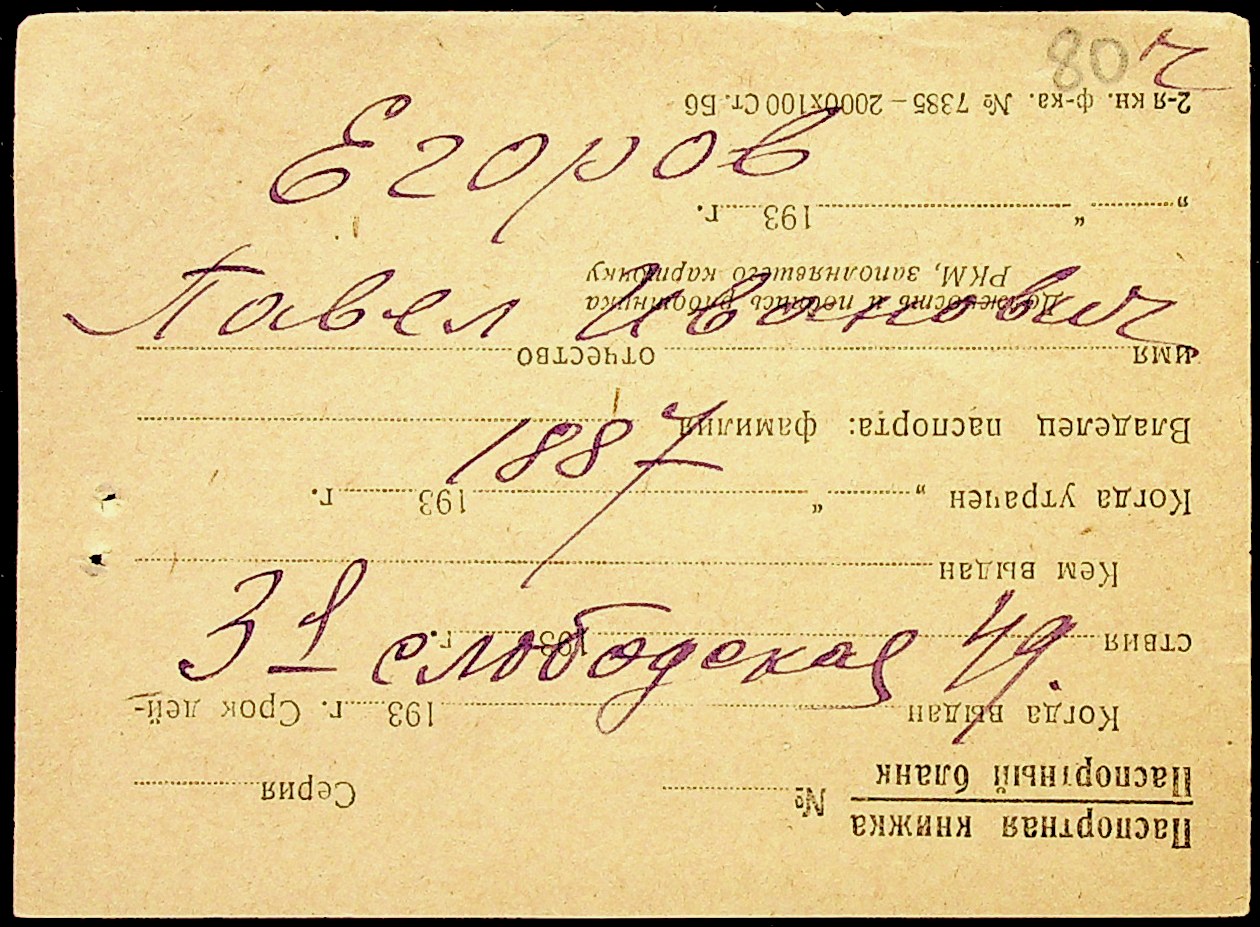 80
Егоров
Павел Иванович
1887
3я слободская 49.
Паспортная книжка
Паспортный бланк № Серия
Когда выдан 193 г. Срок дей-
ствия 193 г.
Кем выдан
Когда утрачен „ “ 193 г.
Владелец паспорта: фамилия
имя отчество
Должность и подпись работника
РКМ, заполнявшего карточку
„ “ 193 г.
2-я кн. ф-ка. № 7385 – 2000х100 Ст. Б6